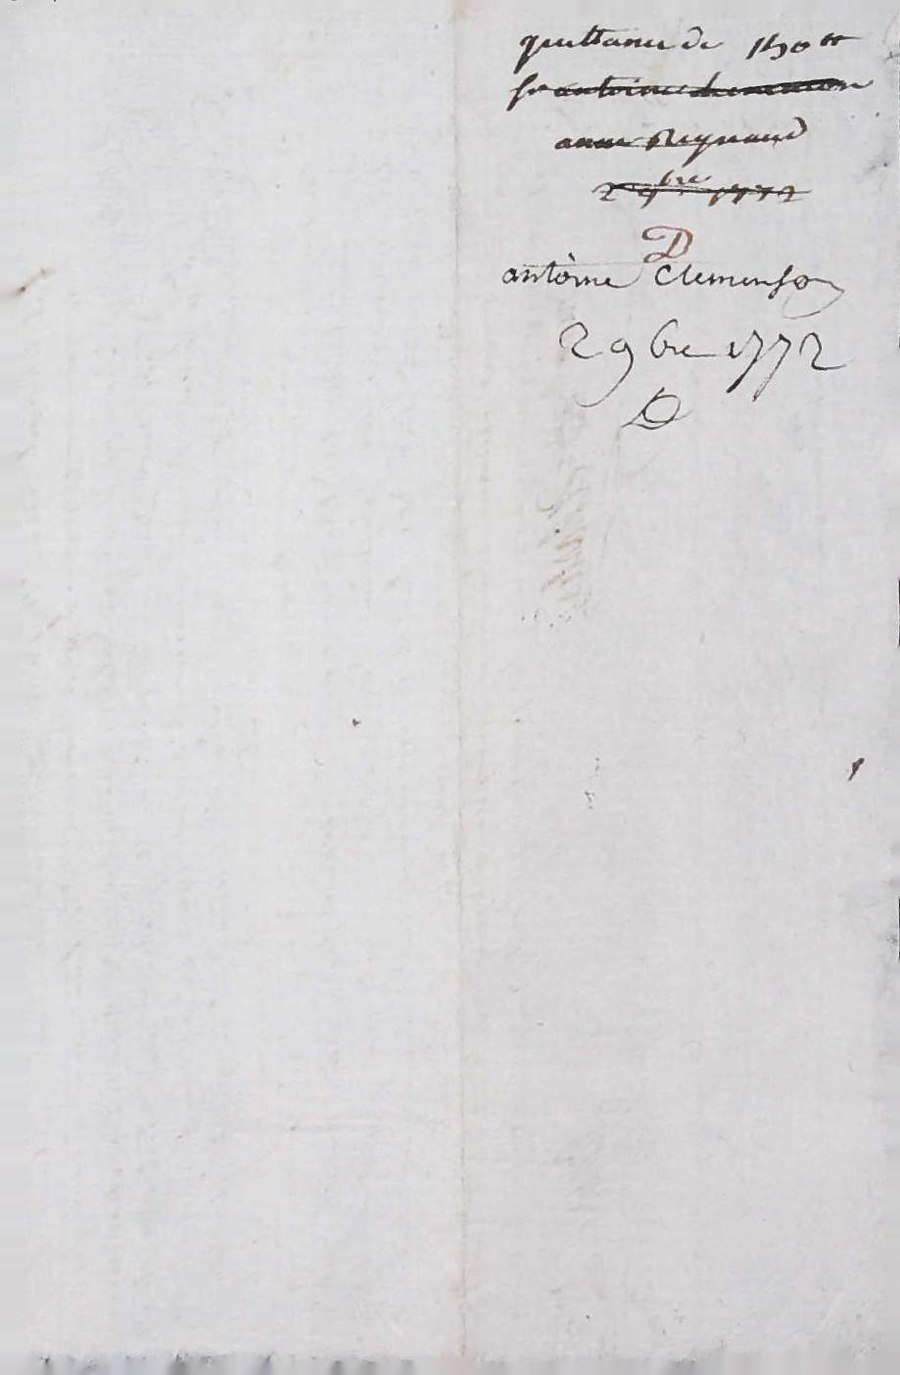 quittance de 150 tt
sr antoine clemenson
anne Reynaud
2 9bre 1772
D
antoine Clemenson
2 9bre 1772
D